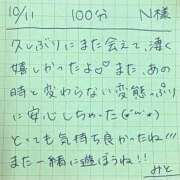 10/11 100分 N様
久しぶりにまた会えて、凄く
嬉しかったよ♡♡また、あの
時と変わらない変態っぷり
に安心しちゃった(๑˃̵ᴗ˂̵)
とっても気持ち良かったね!!!
また一緒に遊ぼうね!!
みと